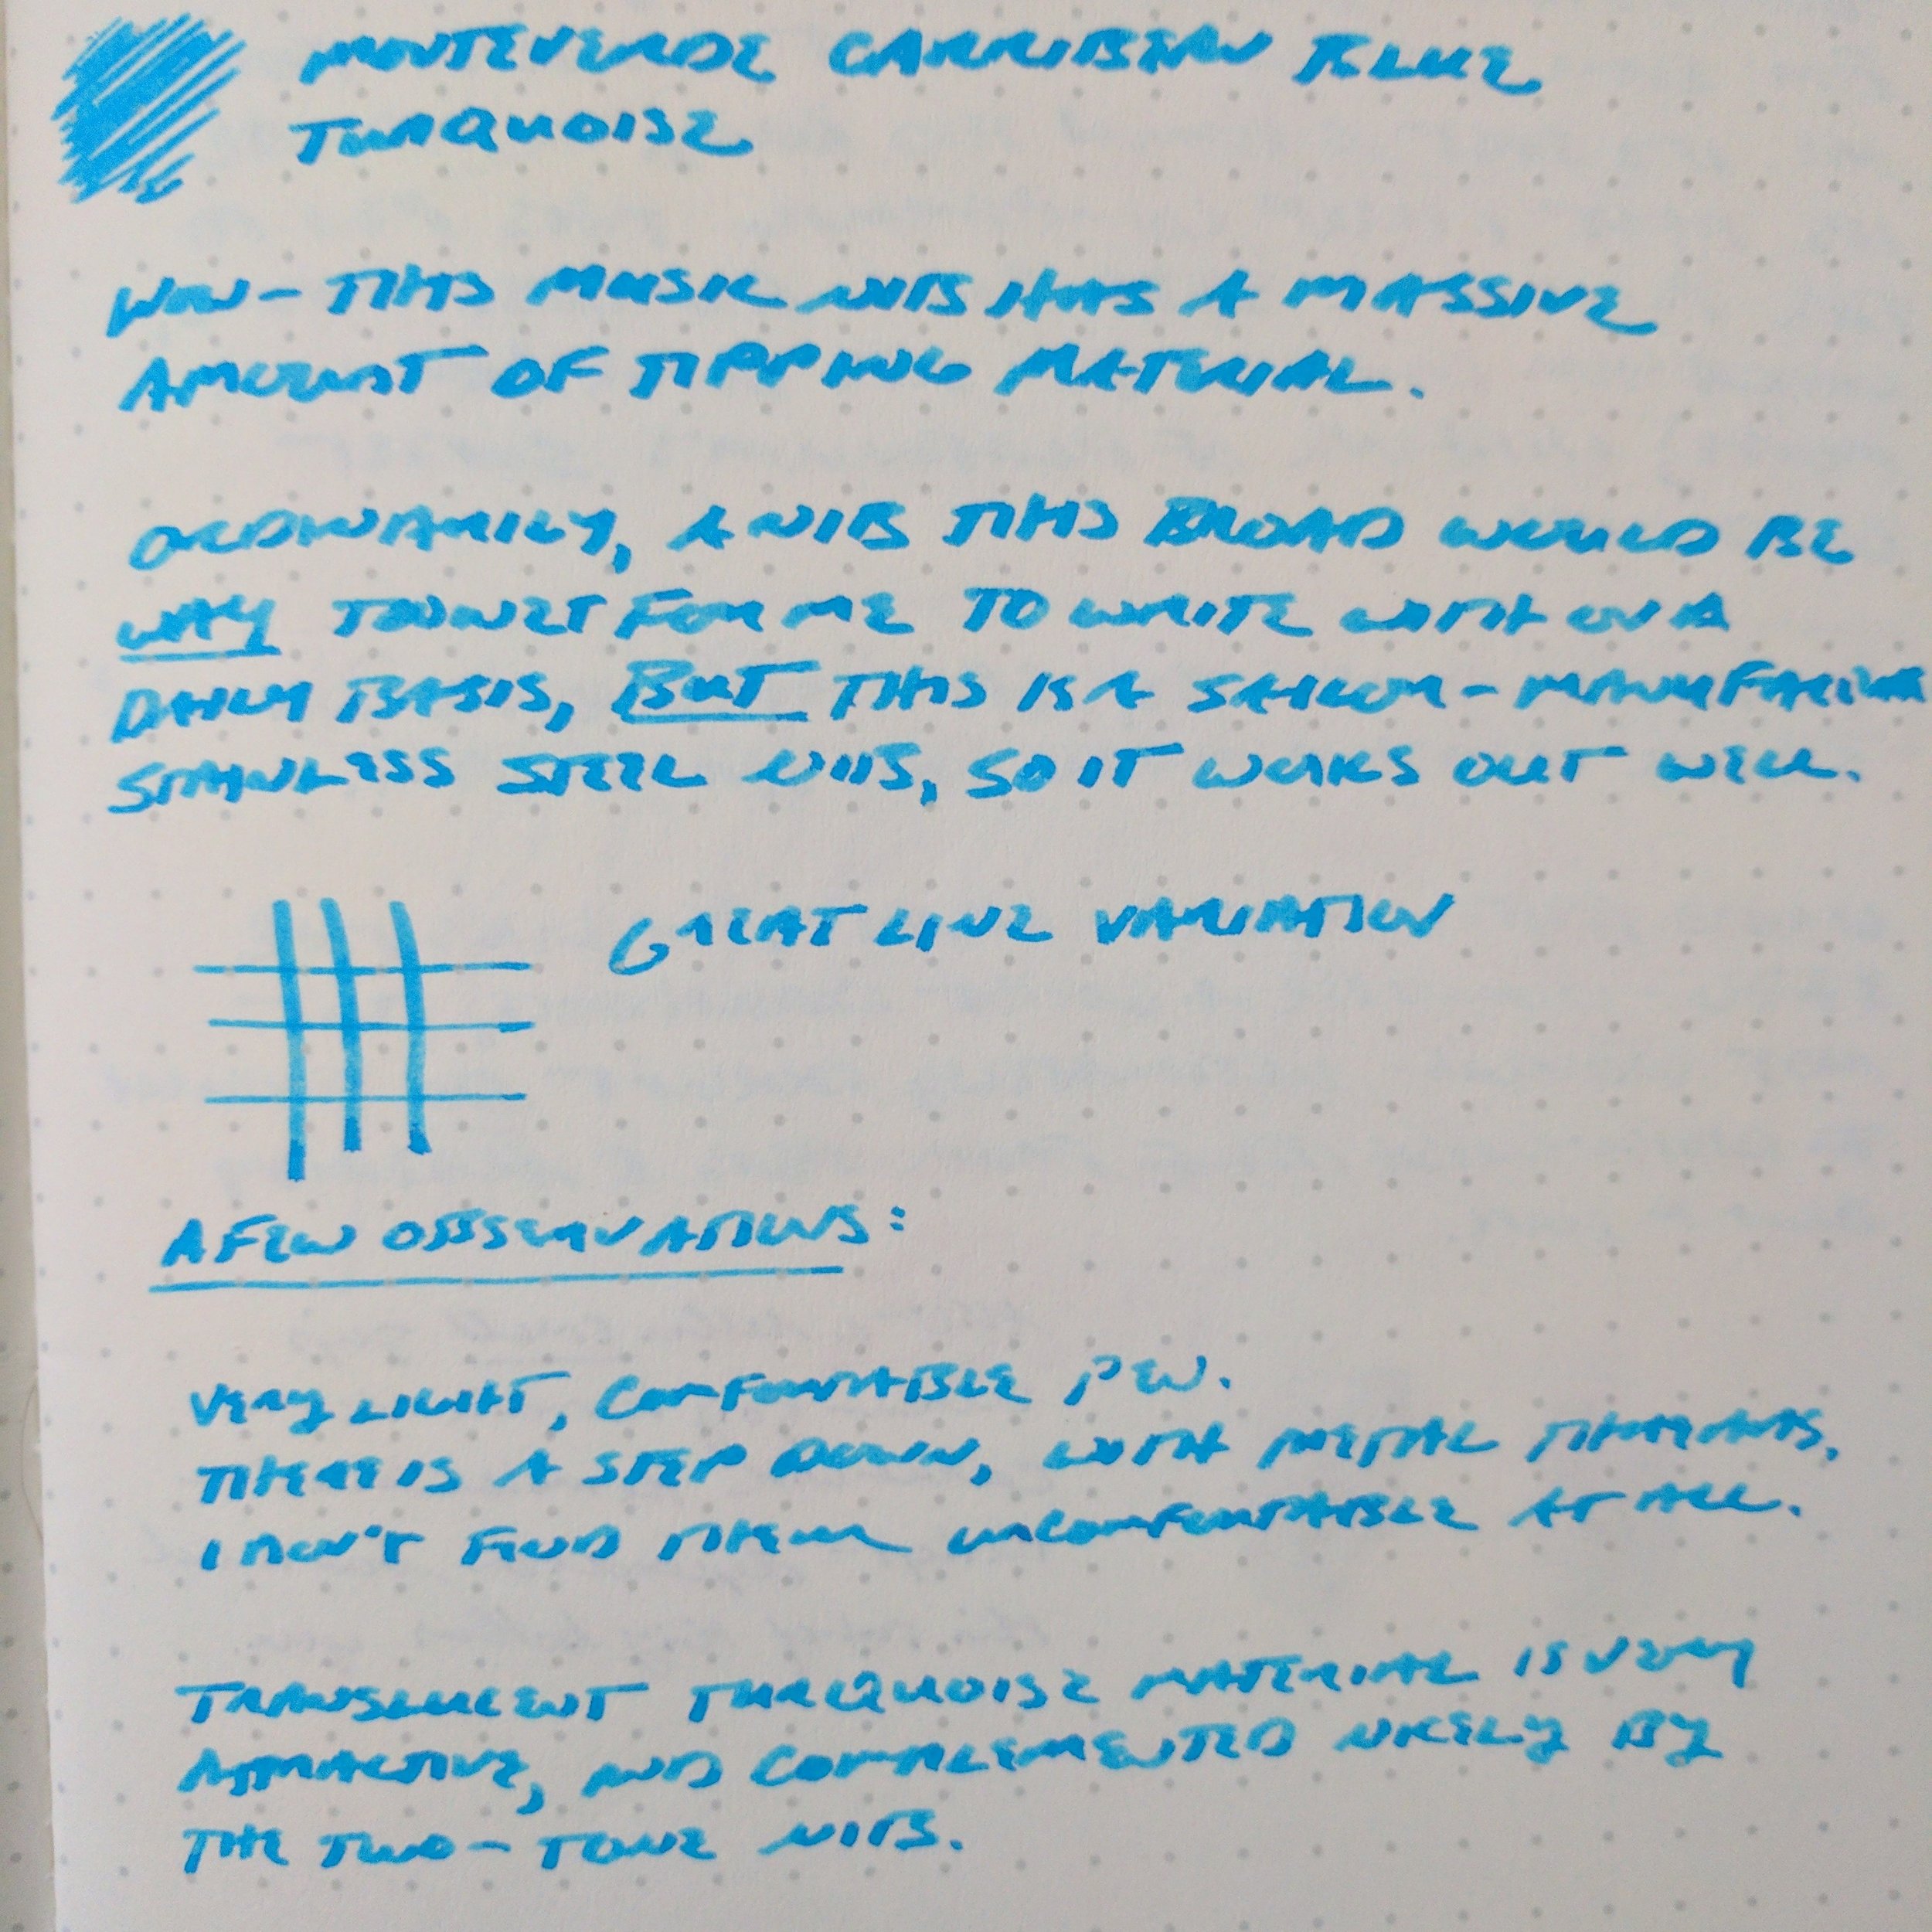 MONTEVERDE CARRIBEAN BLUE
TURQUOISE
WOW - THIS MUSIC NIB HAS A MASSIVE
AMOUNT OF TIPPING MATERIAL.
ORDINARILY, A NIB THIS BROAD WOULD BE
WAY TOO WET FOR ME TO WRITE WITH ON A
DAILY BASIS, BUT THIS IS A SAILOR-MANUFACTURED
STAINLESS STEEL NIB, SO IT WORKS OUT WELL.
GREAT LINE VARIATION
A FEW OBSERVATIONS:
VERY LIGHT, COMFORTABLE PEN.
THERE IS A STEP DOWN, WITH METAL THREADS,
I DON'T FIND THEM UNCOMFORTABLE AT ALL.
TRANSLUCENT TURQUOISE MATERIAL IS VERY
ATTRACTIVE, AND COMPLEMENTED NICELY BY
THE TWO-TONE NIB.